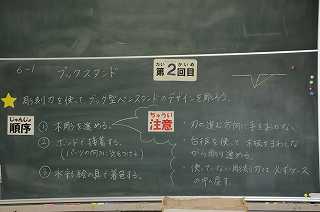 6-1 ブックスタンド
だい かいめ
第2回目
彫刻刀を使って、ブック型ペンスタンドのデザインを彫ろう。
じゅんじょ
順序
① 木彫を進める。
② ボンドで接着する。
(パーツの向に気をつけて)
③ 水彩絵の具で着色する。
ちゅうい
注意
・刃の進む方向に手をおかない。
・台板を使って木板をまわしな
がら彫り進める。
・使っていない彫刻刀は必ずケース
の中へ戻す。